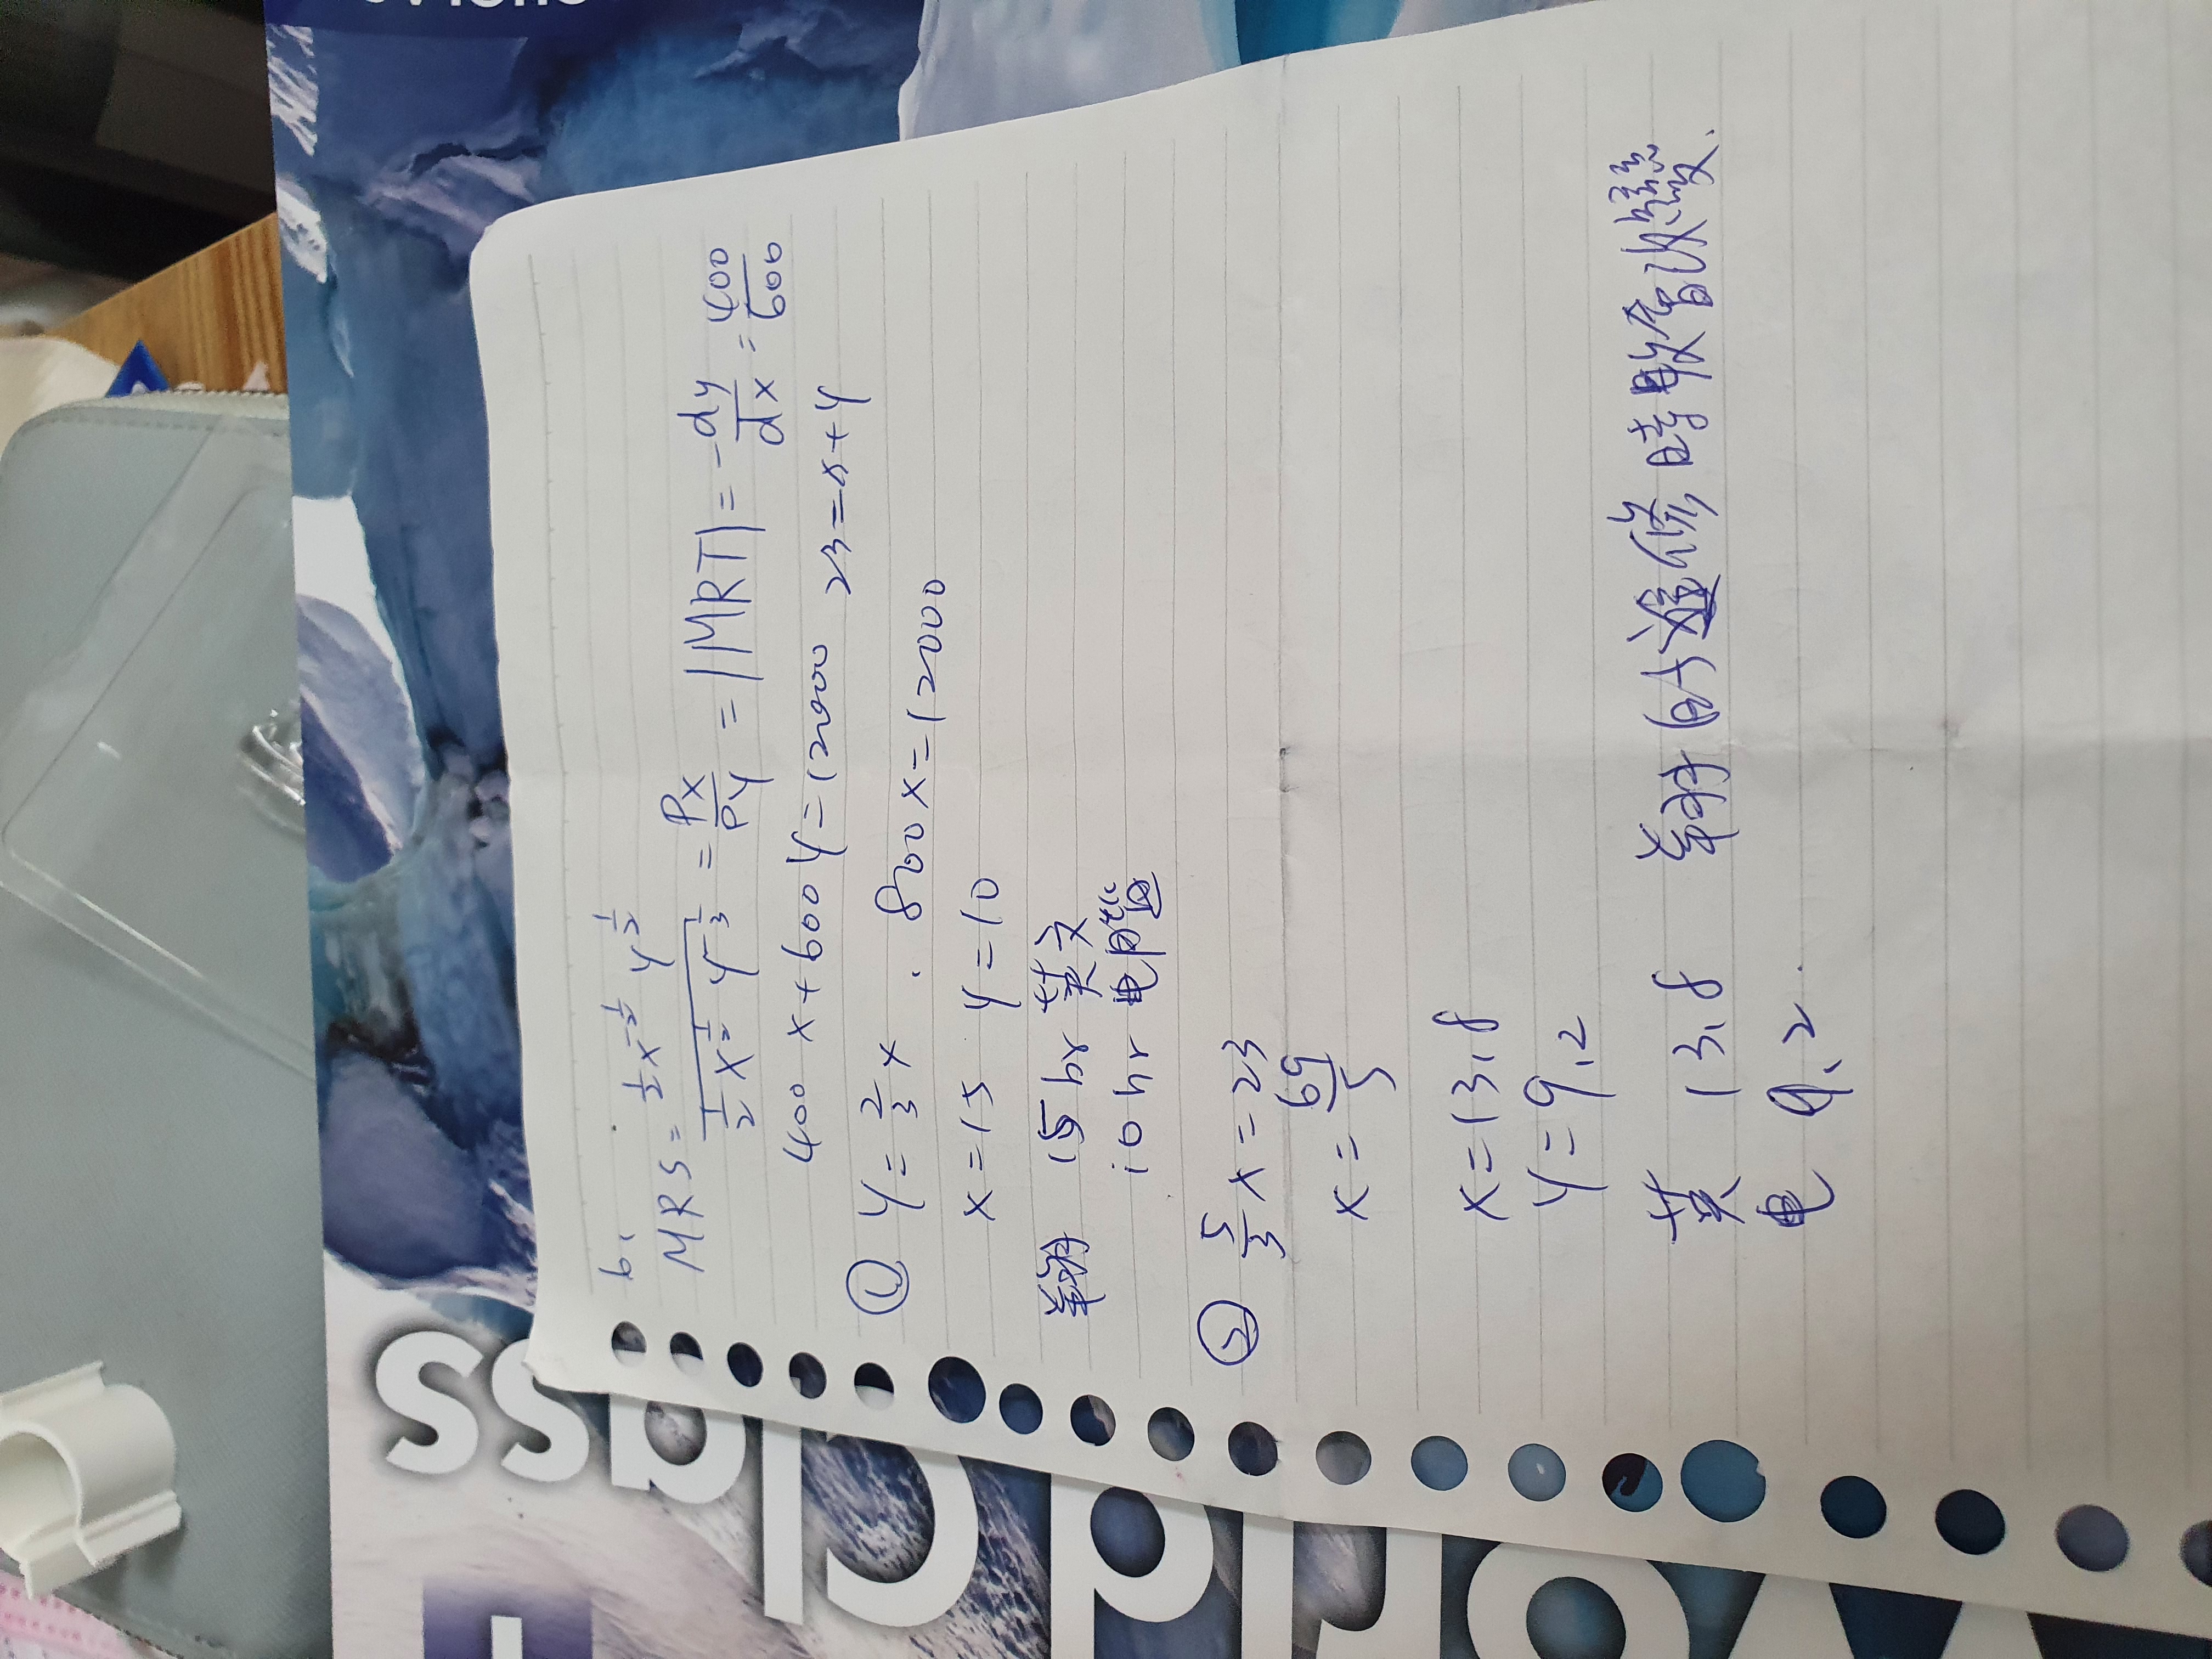 World Class
6.
MRS = \frac{\frac{1}{2}x^{-\frac{1}{2}} y^{\frac{1}{2}}}{\frac{1}{2}x^{\frac{1}{2}} y^{-\frac{1}{3}}} = \frac{Px}{Py} = |MRT| = -\frac{dy}{dx} = \frac{400}{600}
400 x + 600 y = 12000 23 = x + y
① y = \frac{2}{3} x . 800x = 12000
x = 15 y = 10
翔 15 hr 英文
10 hr 电腦
② \frac{5}{3} x = 23
x = \frac{69}{5}
x = 13.8
y = 9.2
英 13.8 翔的進修時數會改變.
电 9.2.